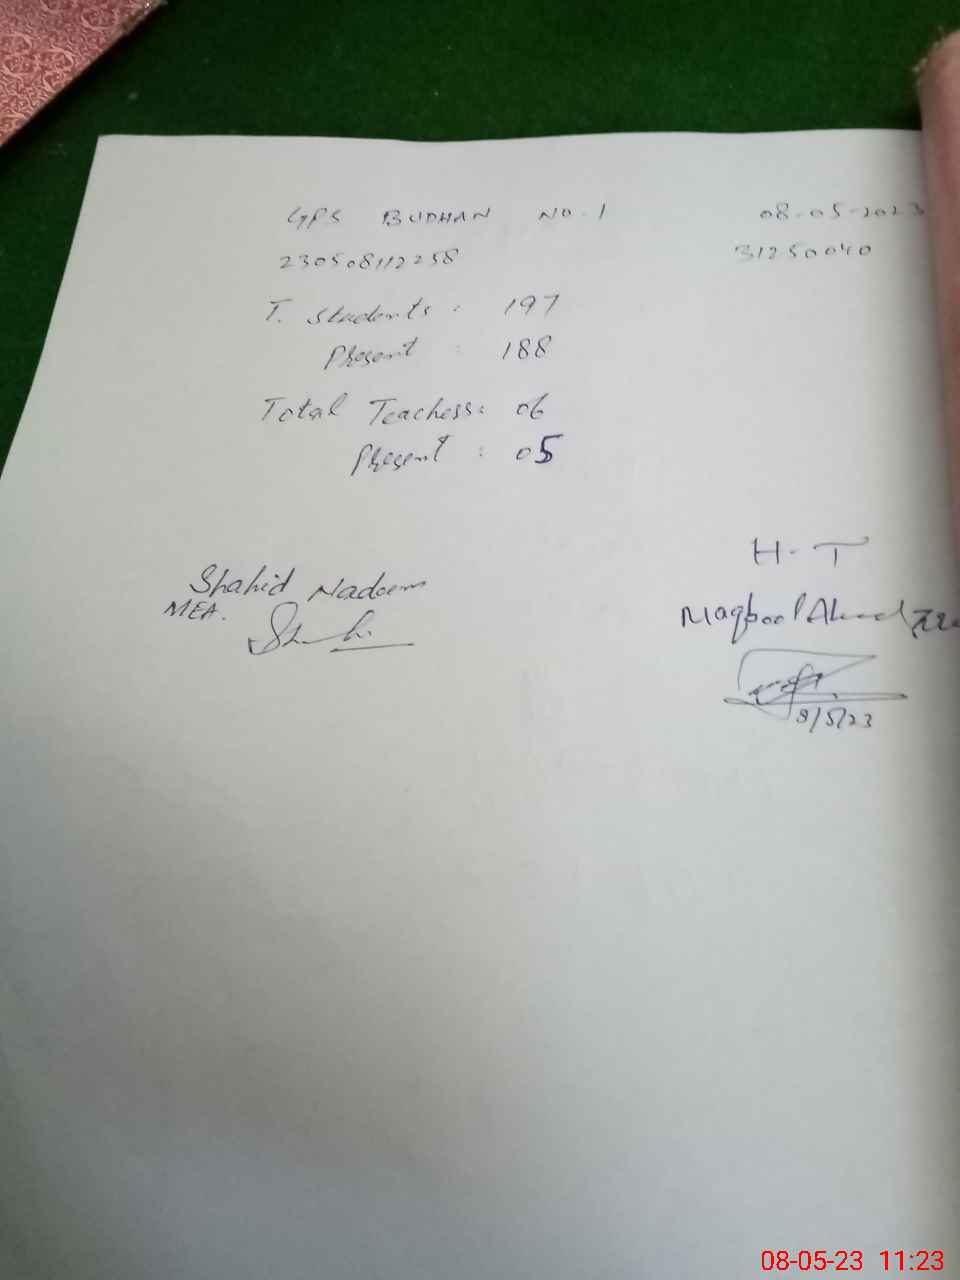 GPS BUDHAN NO. 1 08-05-2023
230508112258 31250040
T. Students : 197
Present : 188
Total Teachess: 06
Present : 05
H. T
Shahid Nadeem
MEA.
Maqbool Ahmad
8/5/23
08-05-23 11:23